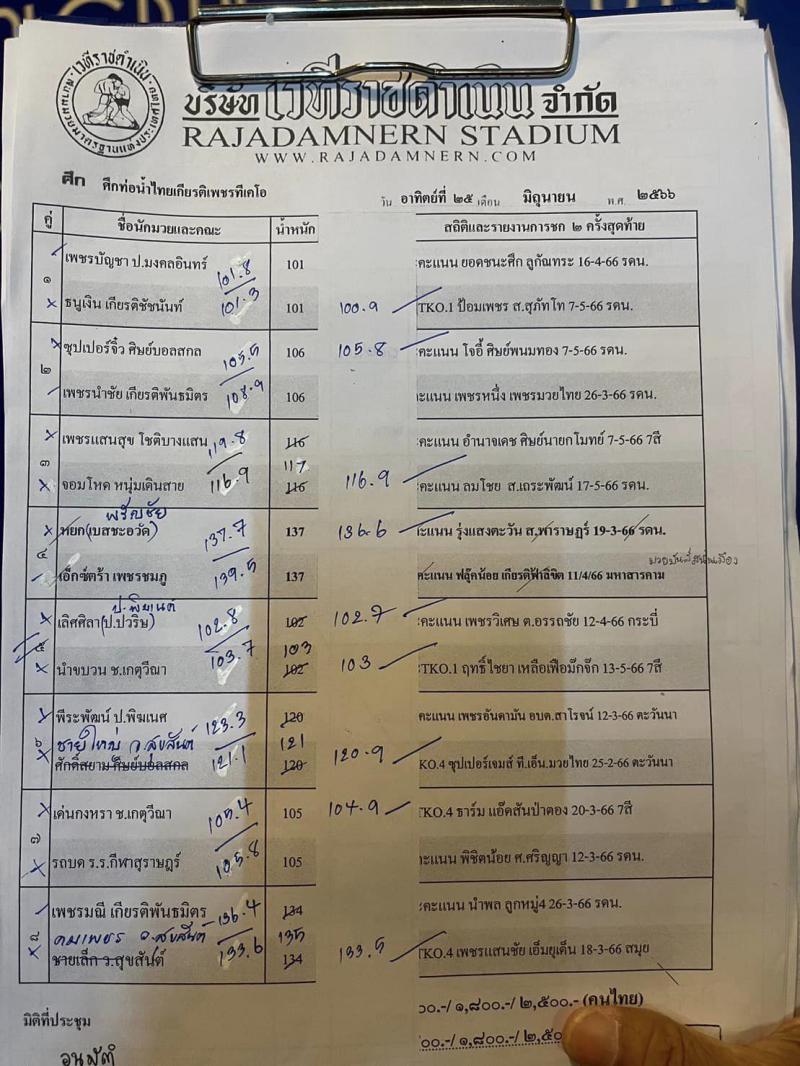 เวทีราชดำเนิน
บริษัท เวทีราชดำเนิน จำกัด
RAJADAMNERN STADIUM
WWW.RAJADAMNERN.COM
ศึก ศึกท่อน้ำไทยเกียรติเพชรทีเคโอ
วัน อาทิตย์ที่ ๒๕ เดือน มิถุนายน พ.ศ. ๒๕๖๖
คู่ ชื่อนักมวยและคณะ น้ำหนัก สถิติและรายงานการชก ๒ ครั้งสุดท้าย
เพชรบัญชา ป.มงคลอินทร์ 101.8 101 คะแนน ยอดชนะศึก ลูกัณทระ 16-4-66 รดน.
๑
ธนูเงิน เกียรติชัชนันท์ 101.3 101 100.9 TKO.1 ป้อมเพชร ส.สุภัทโท 7-5-66 รดน.
ซุปเปอร์จิ๋ว ศิษย์บอลสกล 105.5 106 105.8 คะแนน โจอี้ ศิษย์พนมทอง 7-5-66 รดน.
๒
เพชรนำชัย เกียรติพันธมิตร 108.9 106 คะแนน เพชรหนึ่ง เพชรมวยไทย 26-3-66 รดน.
เพชรแสนสุข โชติบางแสน 119.8 116 คะแนน อำนาจเดช ศิษย์นายกโมทย์ 7-5-66 7สี
๓ 117
จอมโหด หนุ่มเดินสาย 116.9 116 116.9 คะแนน ลมโชย ส.เถระพัฒน์ 17-5-66 รดน.
หยก(บสชะอวัด) 137.7 137 136.6 คะแนน รุ่งแสงตะวัน ส.พาราษฎร์ 19-3-66 รดน.
๔
เอ็กซ์ตร้า เพชรชมภู 139.5 137 คะแนน ฟลุ๊คน้อย เกียรติฟ้าลิขิต 11/4/66 มหาสารคาม
เลิศศิลา(ป.ปวริษ) 102.8 102 102.7 คะแนน เพชรวิเศษ ต.อรรถชัย 12-4-66 กระบี่
๕ 103
นำขบวน ช.เกตุวีณา 103.7 102 103 TKO.1 ฤทธิ์ไชยา เหลือเฟือมั๊กจ๊ก 13-5-66 7สี
พีระพัฒน์ ป.พิฆเนศ 123.3 120 คะแนน เพชรอันดามัน อบต.สาโรจน์ 12-3-66 ตะวันนา
๖ ชายใหญ่ ว.สุขสันต์ 121
ศักดิ์สยาม ศิษย์บอลสกล 121.1 120 120.9 KO.4 ซุปเปอร์เจมส์ ที.เอ็น.มวยไทย 25-2-66 ตะวันนา
เด่นกงหรา ช.เกตุวีณา 105.4 105 104.9 TKO.4 ธาร์ม แอ๊ดสันป่าตอง 20-3-66 7สี
๗
รถบด ร.ร.กีฬาสุราษฎร์ 105.8 105 คะแนน พิชิตน้อย ศ.ศริญญา 12-3-66 รดน.
เพชรมณี เกียรติพันธมิตร 136.4 134 คะแนน นำพล ลูกหมู่4 26-3-66 รดน.
๘ คมเพชร ว.สุขสันต์ 135
ชายเล็ก ว.สุขสันต์ 133.6 134 133.5 TKO.4 เพชรแสนชัย เอ็มยูเด็น 18-3-66 สมุย
๐๐.-/ ๑,๘๐๐.-/ ๒,๕๐๐.- (คนไทย)
มติที่ประชุม
๐๐.-/ ๑,๘๐๐.-/ ๒,๕๐